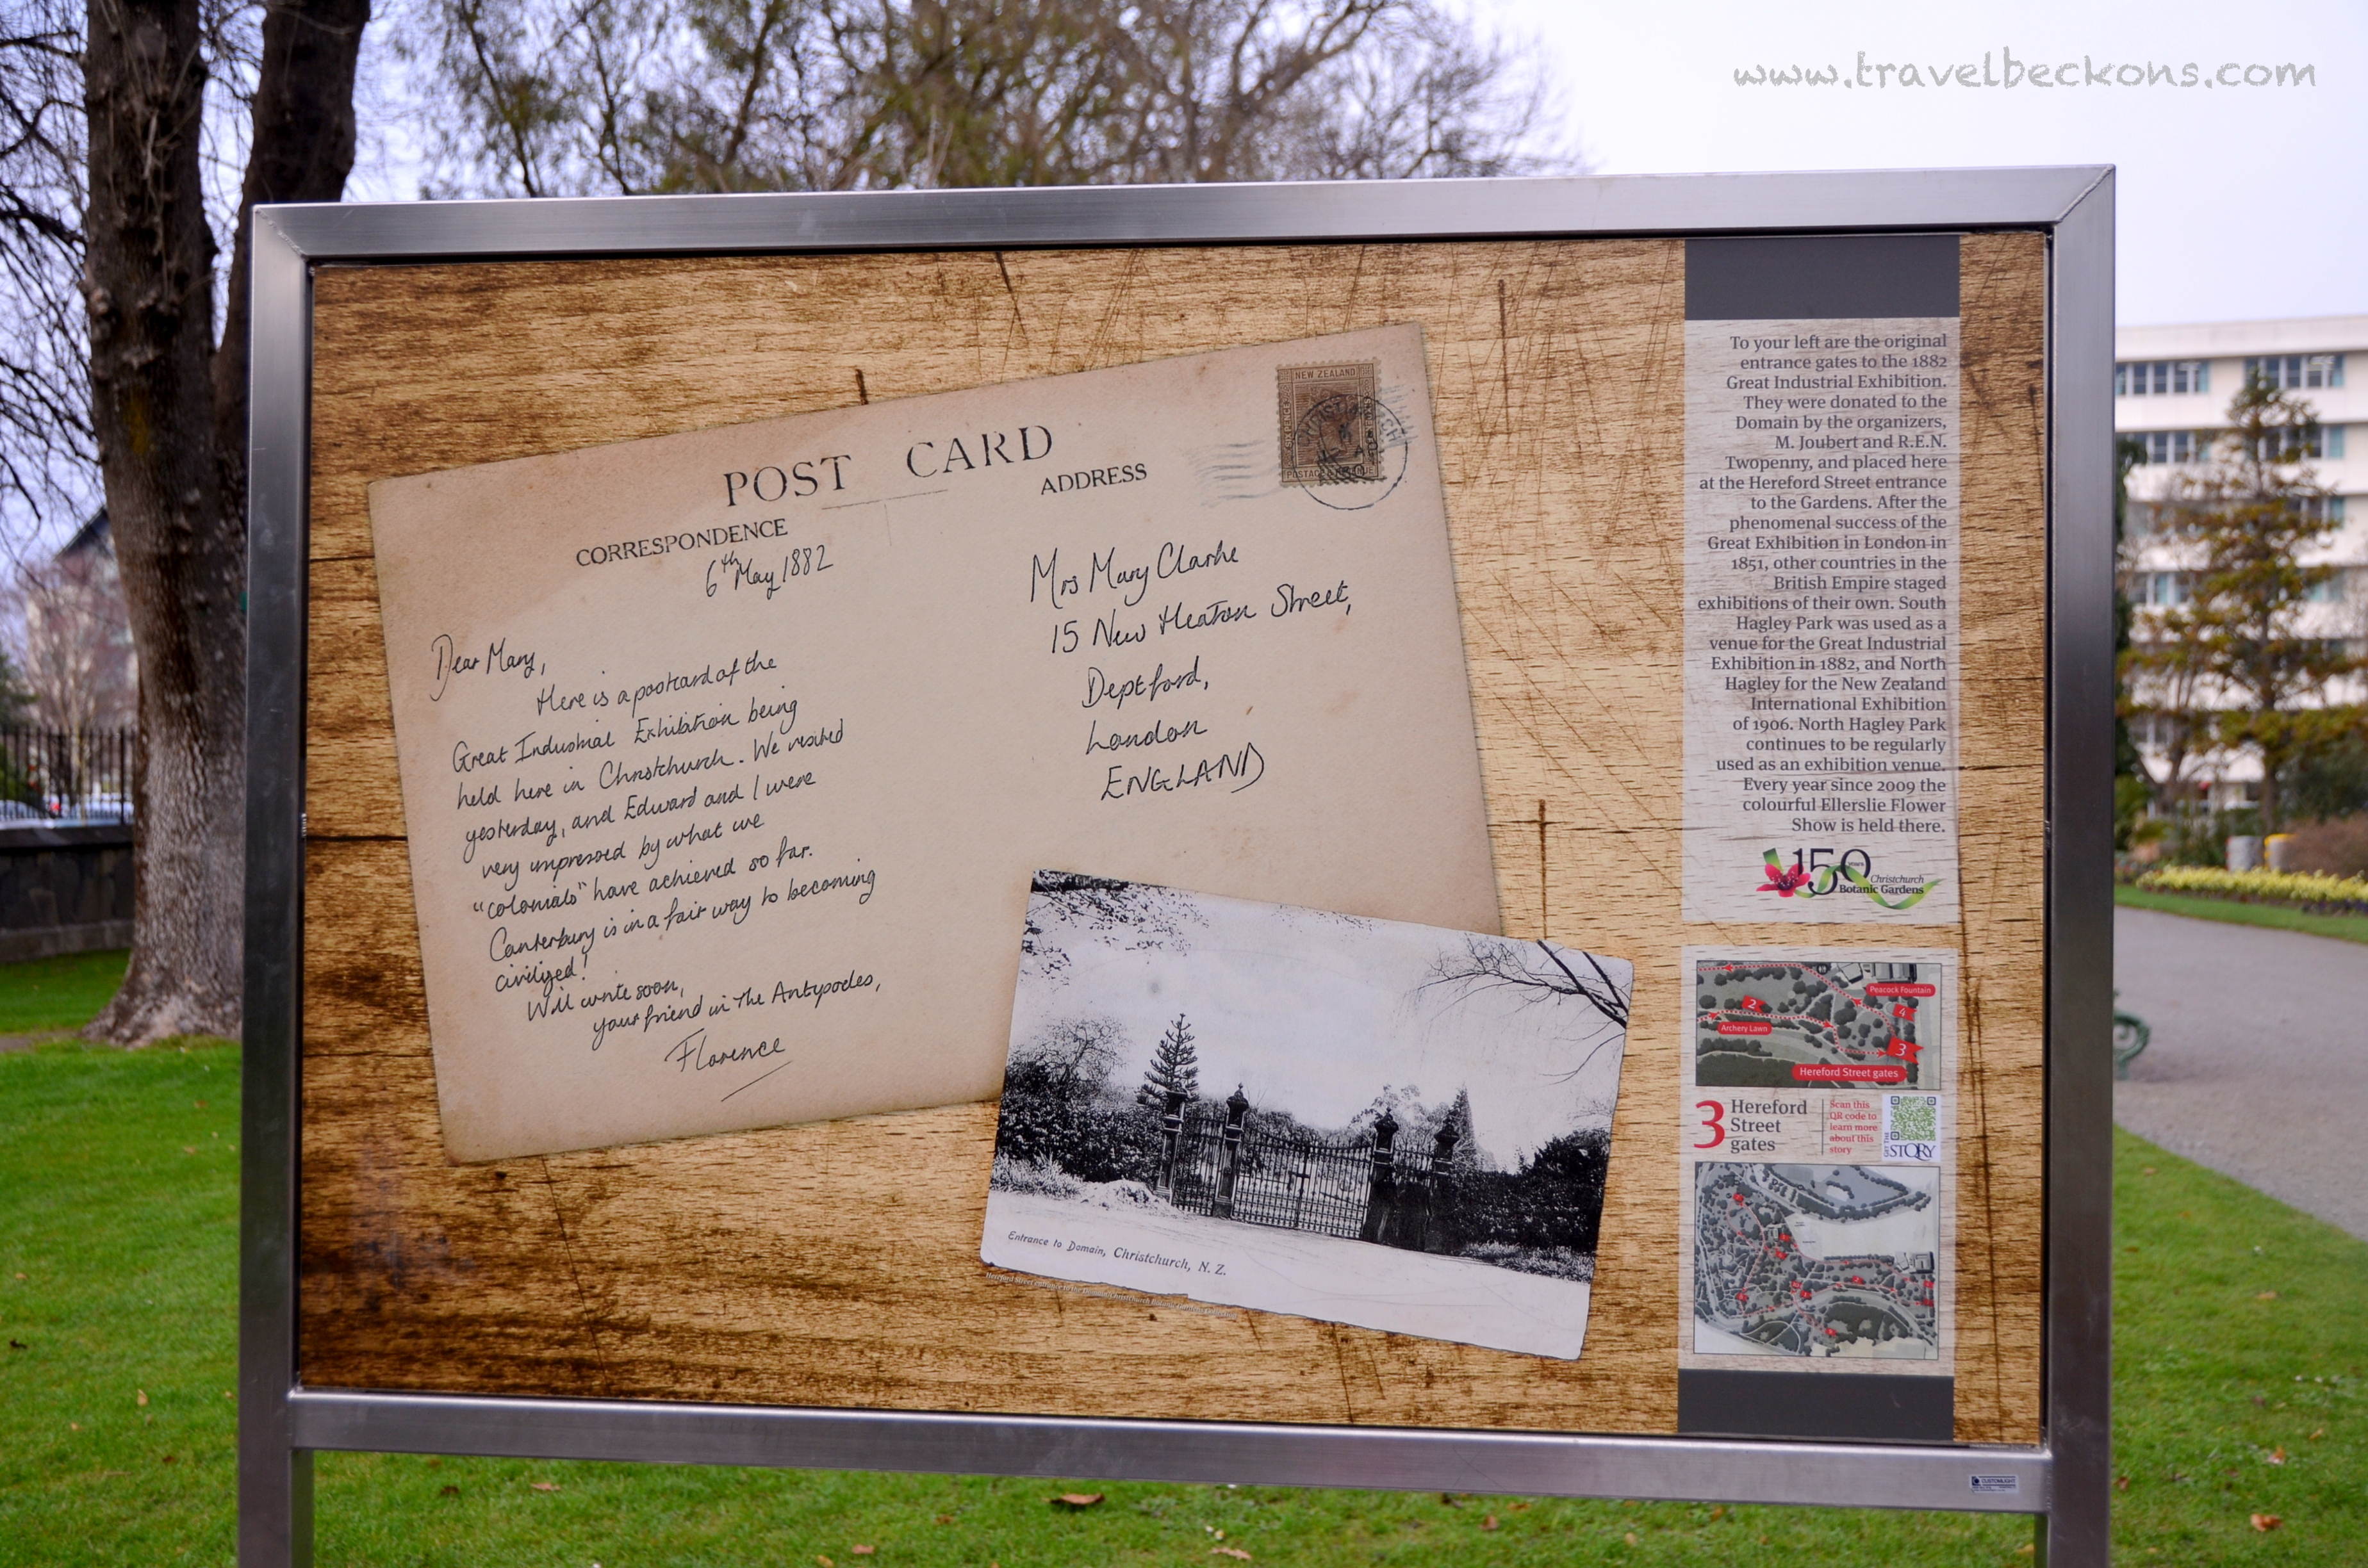 www.travelbeckons.com
POST CARD
CORRESPONDENCE
ADDRESS
NEW ZEALAND
6th May 1882
Dear Mary,
Here is a postcard of the
Great Industrial Exhibition being
held here in Christchurch. We visited
yesterday, and Edward and I were
very impressed by what we
"colonials" have achieved so far.
Canterbury is in a fair way to becoming
civilized!
Will write soon,
your friend in the Antypodes,
Florence
Mrs Mary Clarke
15 New Heaton Street,
Deptford,
London
ENGLAND
Entrance to Domain, Christchurch, N. Z.
To your left are the original
entrance gates to the 1882
Great Industrial Exhibition.
They were donated to the
Domain by the organizers,
M. Joubert and R.E.N.
Twopenny, and placed here
at the Hereford Street entrance
to the Gardens. After the
phenomenal success of the
Great Exhibition in London in
1851, other countries in the
British Empire staged
exhibitions of their own. South
Hagley Park was used as a
venue for the Great Industrial
Exhibition in 1882, and North
Hagley for the New Zealand
International Exhibition
of 1906. North Hagley Park
continues to be regularly
used as an exhibition venue.
Every year since 2009 the
colourful Ellerslie Flower
Show is held there.
150 years
Christchurch
Botanic Gardens
Peacock Fountain
2
4
Archery Lawn
3
Hereford Street gates
3 Hereford
Street
gates
Scan this
QR code to
learn more
about this
story
GET THE STORY